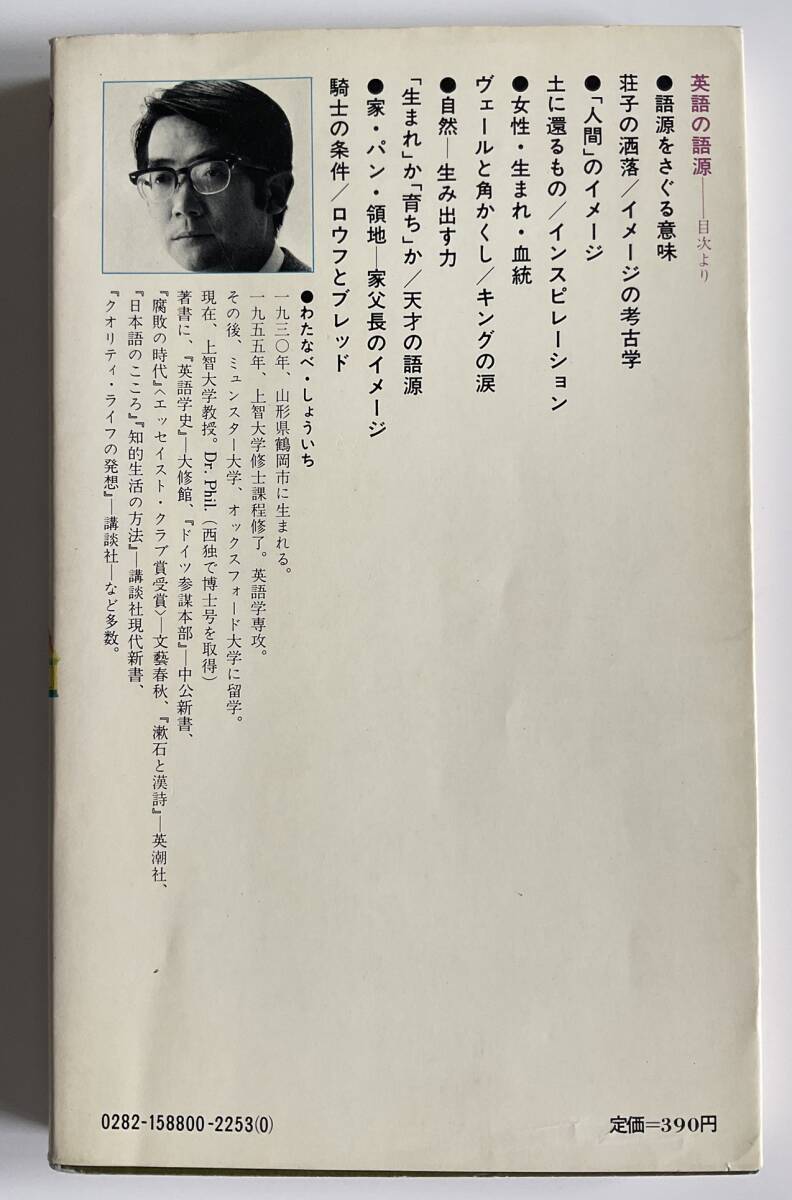 英語の語源——目次より
●語源をさぐる意味
荘子の洒落/イメージの考古学
●「人間」のイメージ
土に還るもの/インスピレーション
●女性・生まれ・血統
ヴェールと角かくし/キングの涙
●自然—生み出す力
「生まれ」か「育ち」か/天才の語源
●家・パン・領地—家父長のイメージ
騎士の条件/ロウフとブレッド
●わたなべ・しょういち
一九三〇年、山形県鶴岡市に生まれる。
一九五五年、上智大学修士課程修了。英語学専攻。
その後、ミュンスター大学、オックスフォード大学に留学。
現在、上智大学教授。Dr. Phil.(西独で博士号を取得)
著書に、『英語学史』—大修館、『ドイツ参謀本部』—中公新書、
『腐敗の時代』〈エッセイスト・クラブ賞受賞〉—文藝春秋、『漱石と漢詩』—英潮社、
『日本語のこころ』『知的生活の方法』—講談社現代新書、
『クオリティ・ライフの発想』—講談社—など多数。
0282-158800-2253(0)
定価=390円